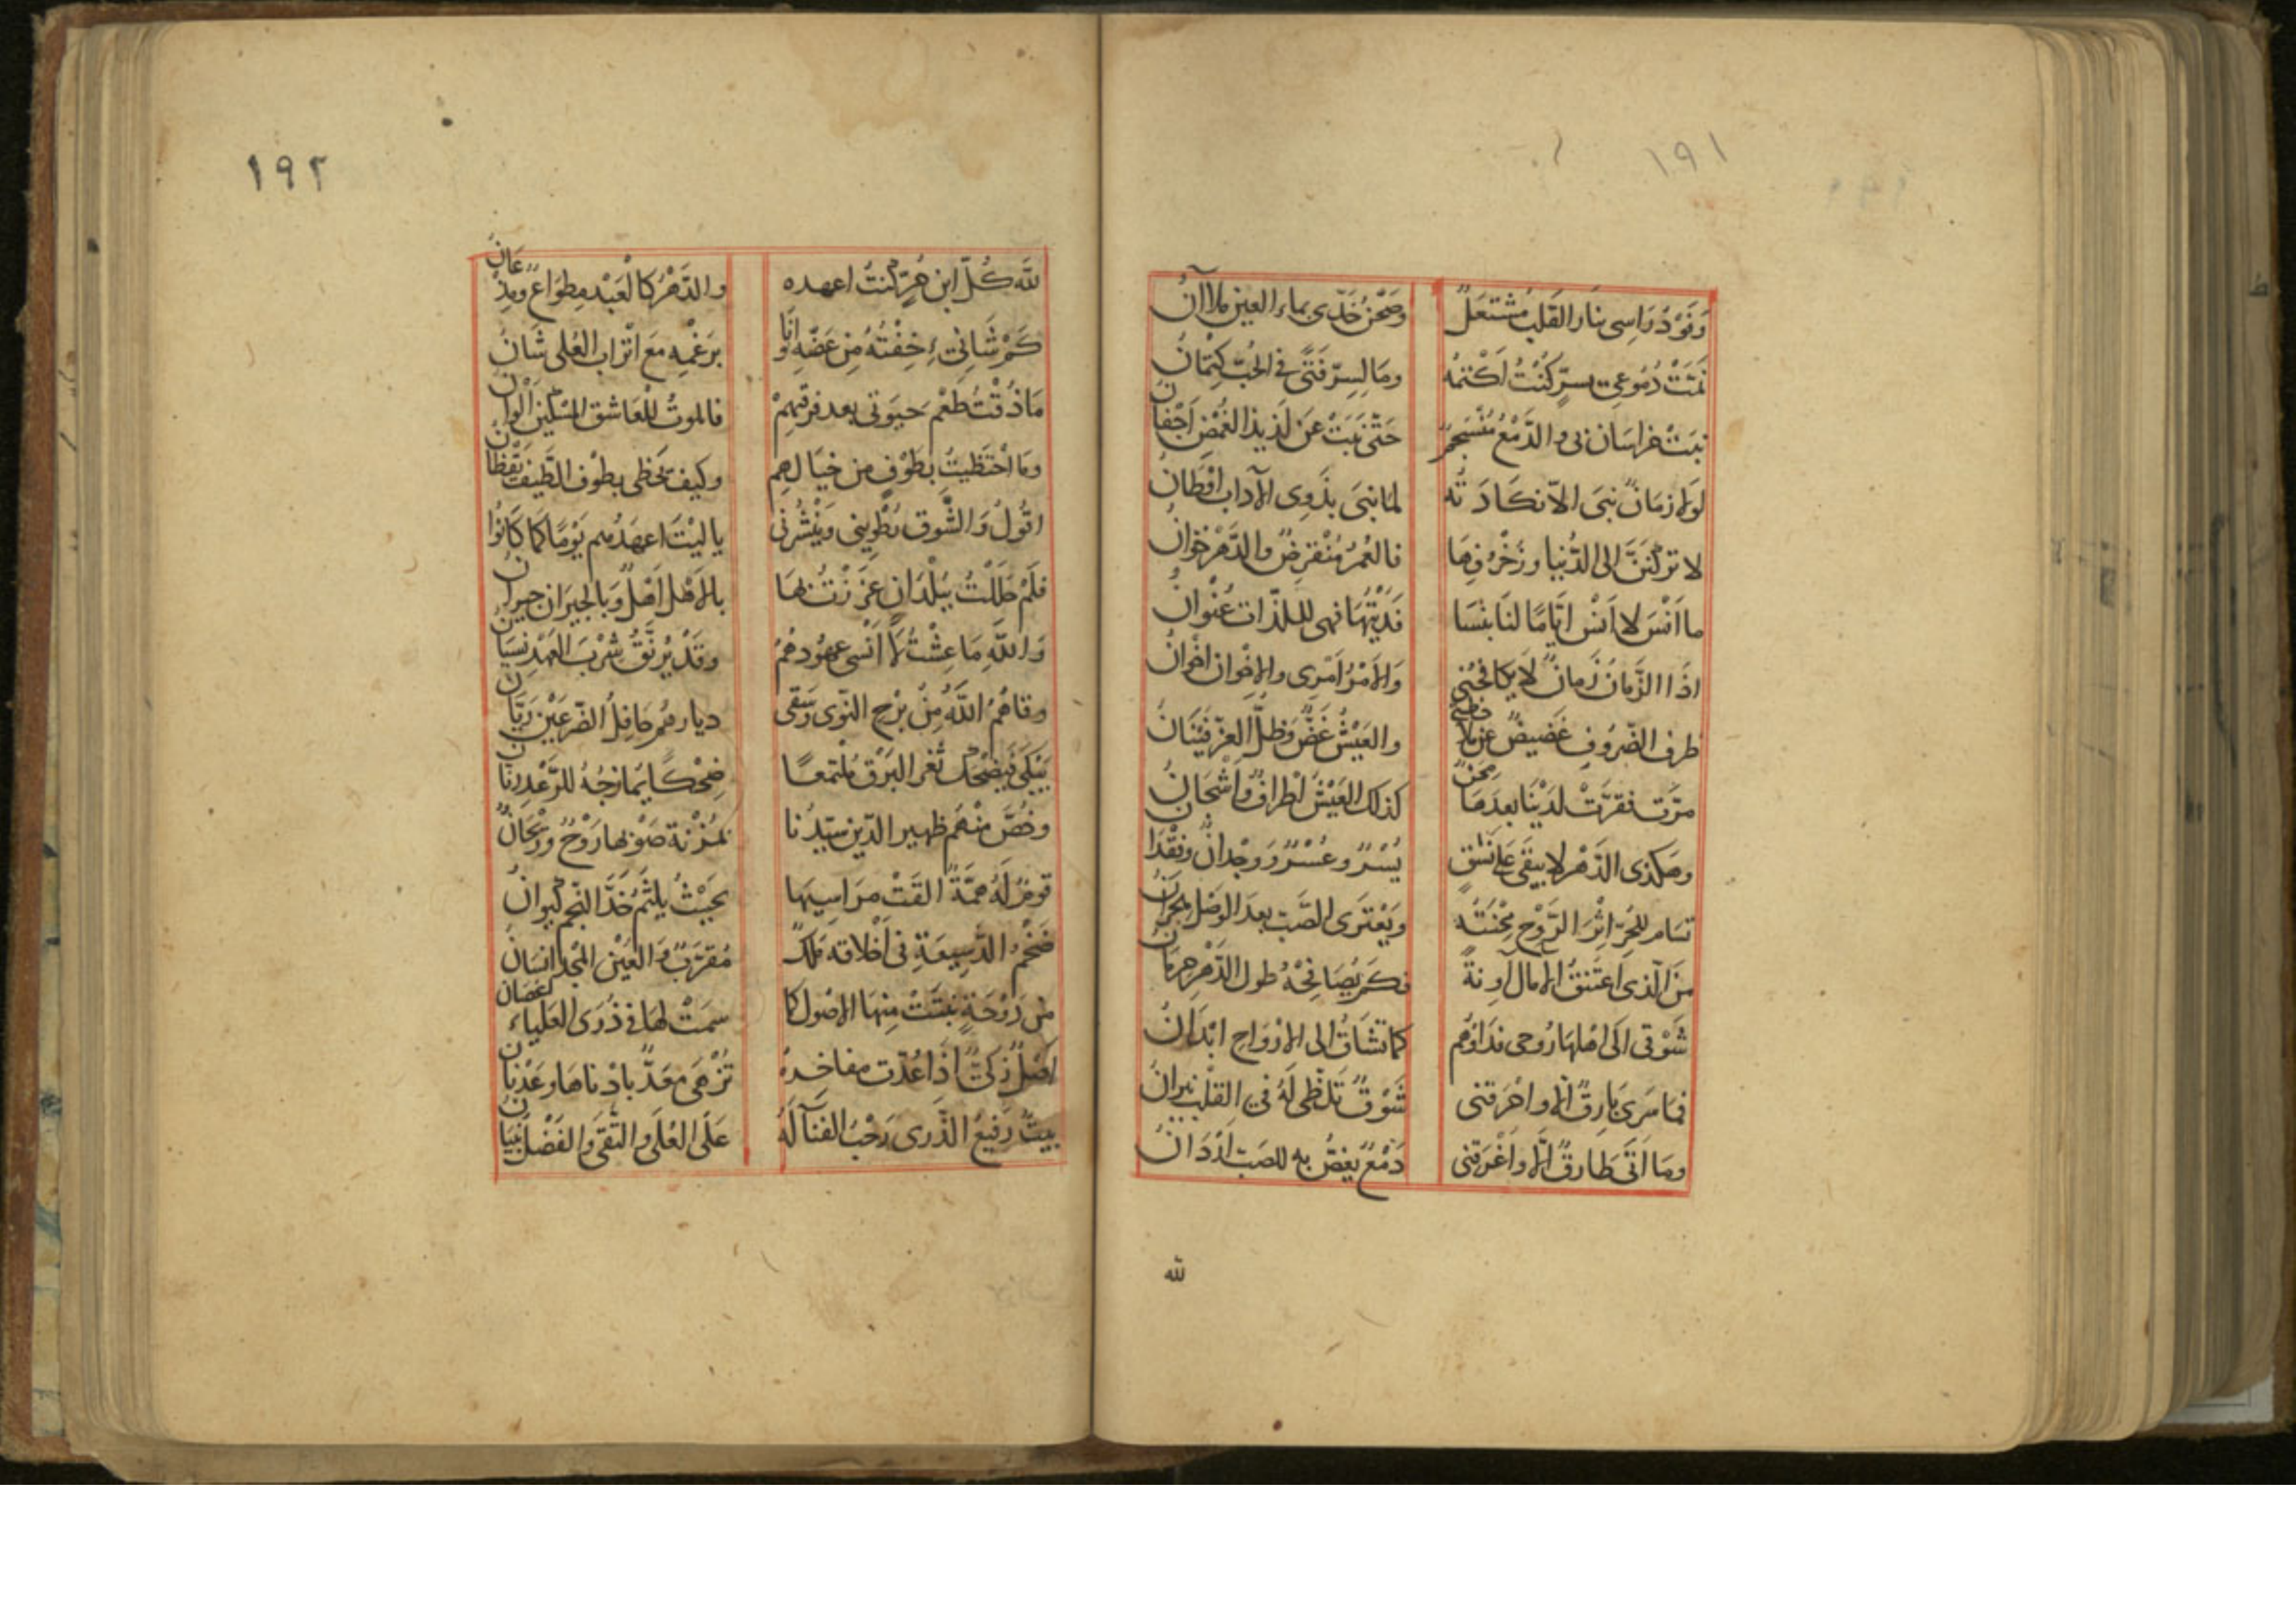 ١٩١
وَفَوْدُ رَاسِى بنَار القَلبِ مُشْتعَلٌ وصَحْنُ خَدّى بماء العين ملاآنُ
نَمَّتْ دُمُوعِى بسِرٍّ كُنْتُ اَكْتمُهُ ومَا لِسِرّ فَتًى فى الحُبّ كِتْمَانُ
نبَتْ خراسَان بى والدّمْعُ مُنْسَجمٌ حَتّى نبَتْ عَن لَذيذ الغُمْضِ اَجْفَانُ
لولا زمَانٌ نبَى الاّ نكَادَ تُه لما نبَى بذَوِى الآداب اوْطَانُ
لا تركنَنَّ الى الدُّنيا وزُخْرُفِهَا فالعُمرُ مُنْقرِضٌ والدّهْرُ خوانُ
ما اَنْسَ لا اَنْسَ ايَّامًا لنَا بنَسَا فَدَيْتُهَا فهى للـلذّات عُنْوانُ
اذَا الزَّمَانُ زَمانٌ لا يكافحُنِى وَالامْرُ اَمْرِى والاخْوَان اخْوَانُ
طرف الصّرُوفِ غَضِيضٌ عن والعَيْشُ غَضٌّ وَظلُّ العزّ فَيْنَانُ
مرّت فقرّتْ لدَيْنَا بعدَهَا مِحَنٌ كذلك العَيْشُ اطْرافٌ وَاَشْجَانُ
وهكذى الدّهْر لا يبقَى عَلى نَسَقٍ يُسْرٌ وعُسْرٌ وَوِجْدانٌ وفقْدَانُ
تسَام للحُرّ اِثْرَ الرَّوْحِ مِحْنَتُهُ ويَعْتَرَى الصَّبّ بعدَ الوَصْل هجْرَانُ
مَنَ الّذى اعْتَنقُ الامال آونةً فكَمْ يُصَافِحُهُ طول الدّهْرِ حِرمَانُ
شَوْقى الَى اهْلهَا رُوحى فدَاؤهُم كما تَشَاقُ الى الارْوَاحِ ابْدَانُ
فمَا سَرَى بَارِقٌ الا واحْرَقَنى شَوْقٌ تَلظّى لَهُ فى القَلْب نيرانُ
ومَا اَتَى طَارِقٌ الّا واغْرَقنى دَمْعٌ يغصُّ به للصَبّ اَرْدَانُ
لله
١٩٢
للّه كُلّ ابن حُرٍّ كنتُ اعهده والدَّهْرُ كالْعَبْدِ مِطوَاعٌ ومِذْعَانُ
كَمْ شَانِىْءٍ خِفْتُهُ مِن غَضّهِ وَانَا برَغْمِهِ مَعَ اتْرَاب العُلى شَانُ
مَا ذُقْتُ طَعْمَ حَيوتى بعد فرقتِهِمْ فالموتُ للْعَاشق المسْكين اَلْوَانُ
ومَا احْتَظيتُ بطَوْفٍ من خيَالهِم وكيف يَحْظى بطوْف الطَّيف يَقْظَانُ
اقُولُ وَالشَّوق يَطْوِينى وَيَنْشُرنى يا ليْتَ اعهَدُهم يَوْمًا كما كَانُوْا
فلَمْ حَلَلْتُ ببُلْدَانٍ عزَزْتُ بهَا بالاهْل اَهْلٌ وَبالجيرَان جيرانُ
وَاللّهِ مَا عِشْتُ لا اَنْسى عهُودهُمُ وقَدْ يُرَنّقُ شرْبَ العَهْدِ نسْيَانُ
وقاهُمُ اللّهُ مِنْ برْحِ النّوى وَسَقَى ديارهُمْ حَافِلُ الضّرعَيْنِ رَيَّانُ
يَبْكى فَيضْحَكُ ثغر البَرْقِ مُلْتمعًا ضِحْكًا يُمَازجُهُ للرَّعْدِ اِرْنَانُ
وخُصَّ منْهُم ظهير الدّين سَيّدُنا بمُزْنة صَوْبها رَوْحٌ ورَيْحَانُ
قومٌ لَهُ هِمَّةٌ القَتْ مَرَاسِيهَا بحَيْثُ يلثَمُ خَدَّ النّجْم كيوانُ
ضَخْمُ الدَّسِيعَةِ فى اَخْلاقه مَلَكٌ مُقرَّبٌ وَالعَيْن المجْد انسَانُ
من دَوْحَةٍ نبَتَتْ مِنْهَا الاصُول كما سَمَتْ لهَا فى ذُرَى العَليَاءِ اغْصَانُ
اَصْلٌ زكىٌّ اذَا عُدّت مفاخرهُ تُزْهَى مَعَدٌّ بادْناهَا وعَدْنَانُ
بيتٌ رَفيعُ الذّرى رَحْبُ الفنآ لَهُ عَلَى العُلَى والتُّقَى وَالفَضْل بُنْيَانُ